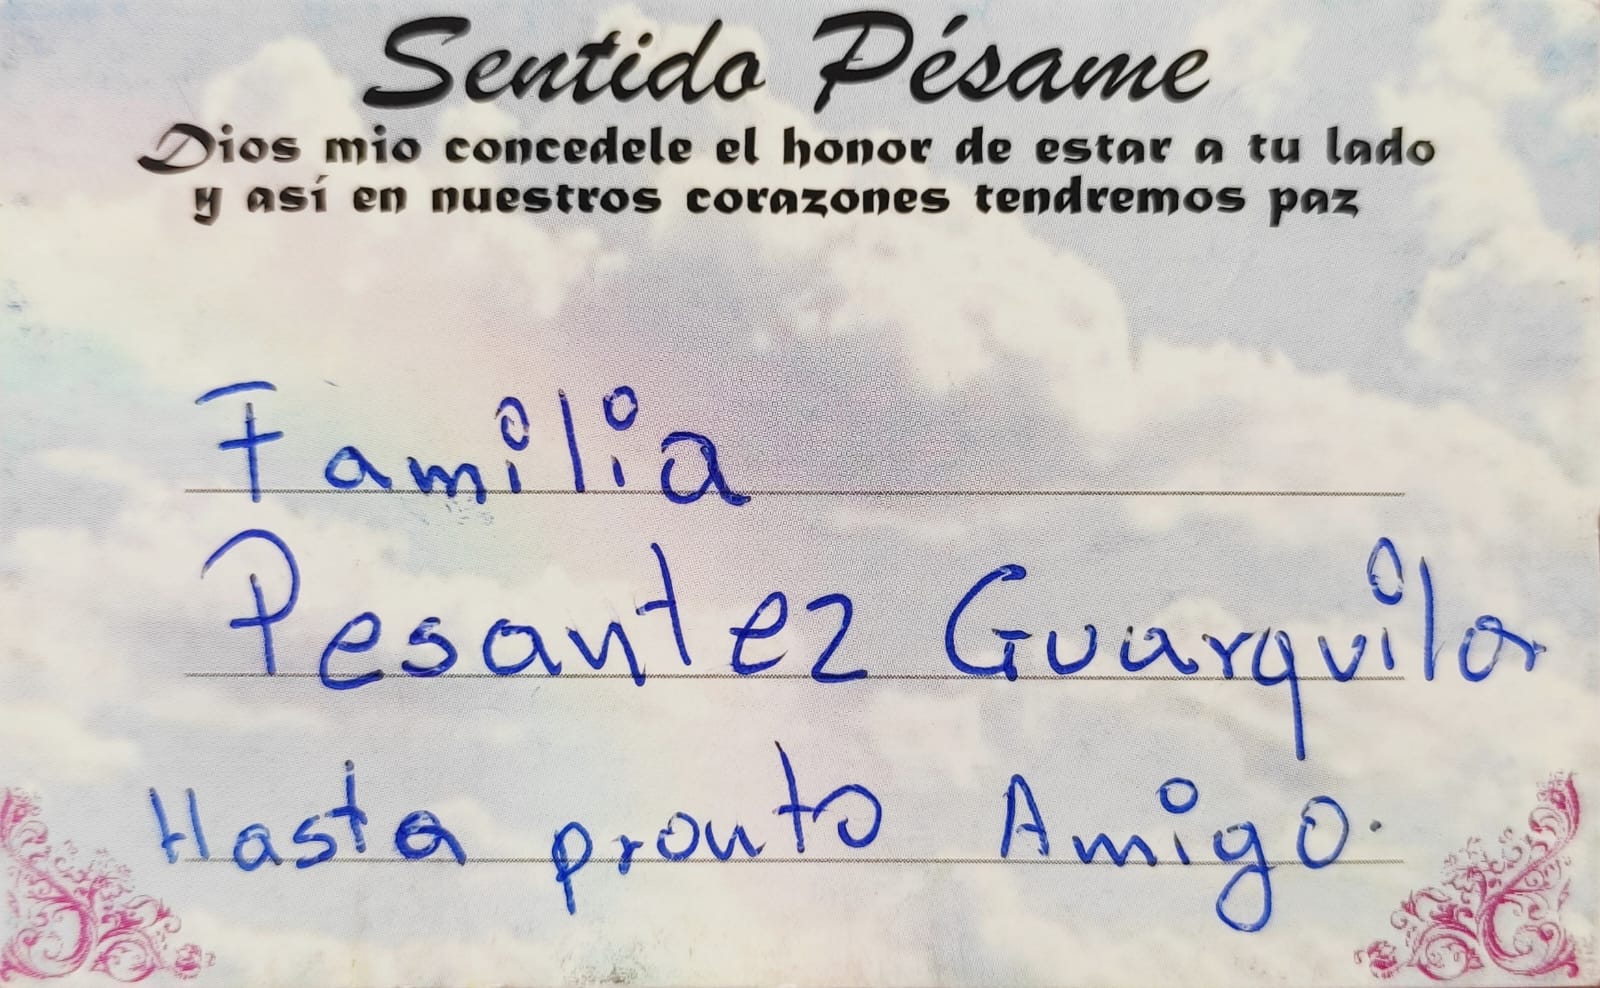 Sentido Pésame
Dios mio concedele el honor de estar a tu lado
y así en nuestros corazones tendremos paz
Familia
Pesantez Guarquila
Hasta pronto Amigo.